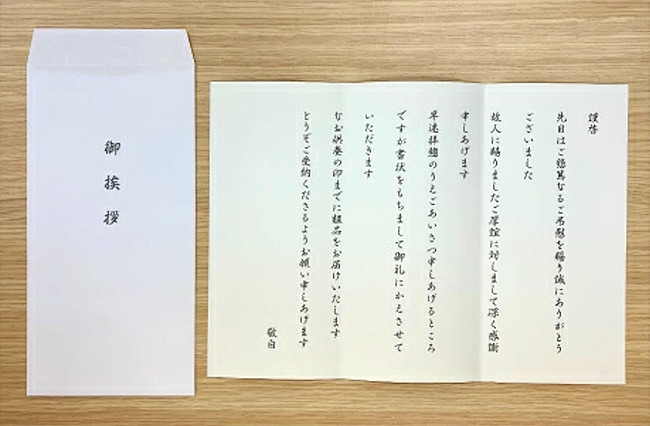 御挨拶
謹啓
先日はご懇篤なるご弔慰を賜り誠にありがとう
ございました
故人に賜りましたご厚誼に対しまして深く感謝
申しあげます
早速拝趨のうえごあいさつ申しあげるところ
ですが書状をもちまして御礼にかえさせて
いただきます
なお供養の印までに粗品をお届けいたします
どうぞご受納くださるようお願い申しあげます
敬白